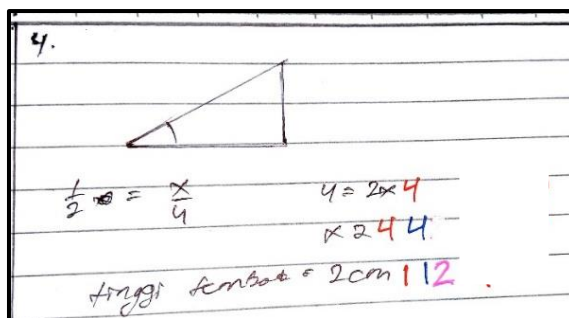 4.
1/2 = x/4 4 = 2x 4
x 2 4 4
tinggi = 2 cm 1 1 2 .